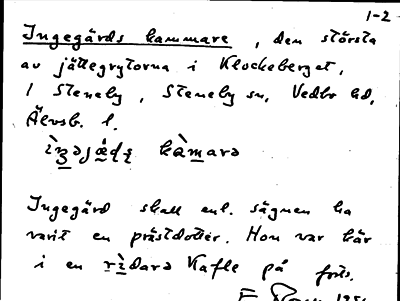 1-2
Ingegärds kammare, den största
av jättegrytorna i Klockeberget,
1 Steneby, Steneby sn, Vedbo hd,
Älvsb. l.
kàmarə
Ingegärd skall enl. sägnen ha
varit en prästdotter. Hon var kär
i en rìdarə Kafle på forts.